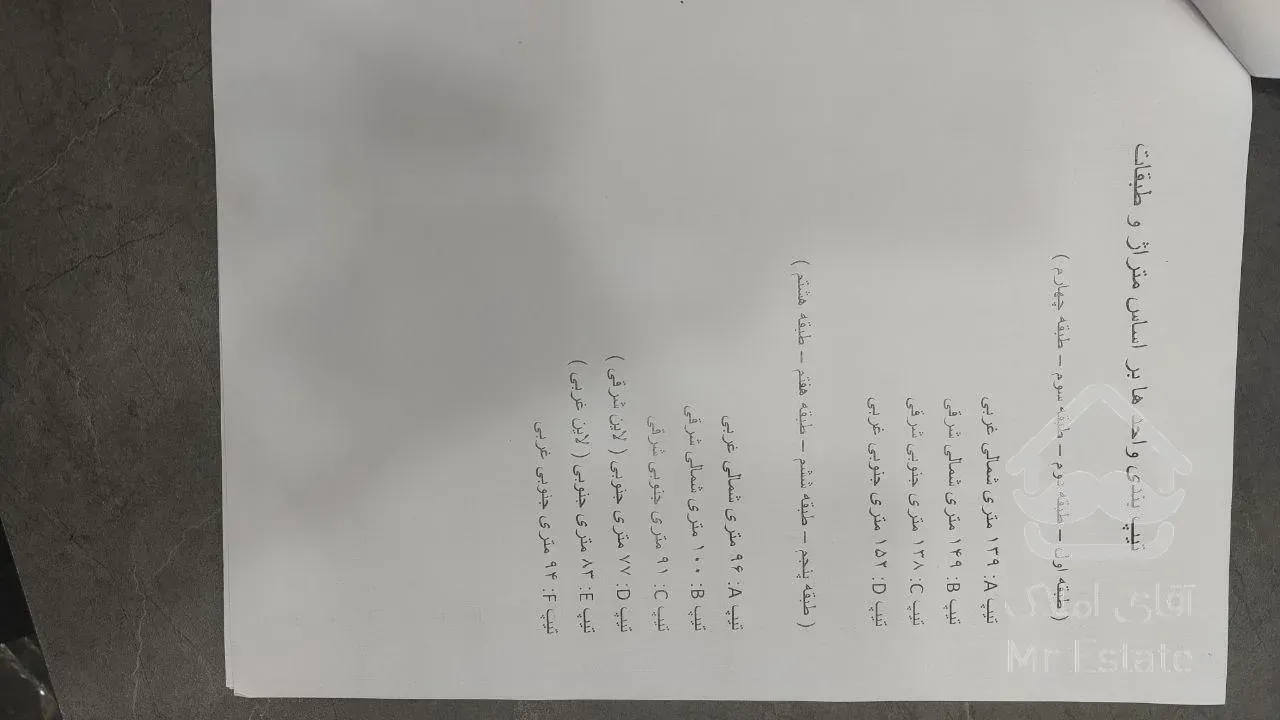 تیپ بندی واحد ها بر اساس متراژ و طبقات
( طبقه اول – طبقه دوم – طبقه سوم – طبقه چهارم )
تیپ A: ۱۳۹ متری شمالی غربی
تیپ B: ۱۴۹ متری شمالی شرقی
تیپ C: ۱۳۸ متری جنوبی شرقی
تیپ D: ۱۵۲ متری جنوبی غربی
( طبقه پنجم – طبقه ششم – طبقه هفتم – طبقه هشتم )
تیپ A: ۹۶ متری شمالی غربی
تیپ B: ۱۰۰ متری شمالی شرقی
تیپ C: ۹۱ متری جنوبی شرقی
تیپ D: ۷۷ متری جنوبی ( لاین شرقی )
تیپ E: ۸۳ متری جنوبی ( لاین غربی )
تیپ F: ۹۴ متری جنوبی غربی
آقای املاک
Mr Estate